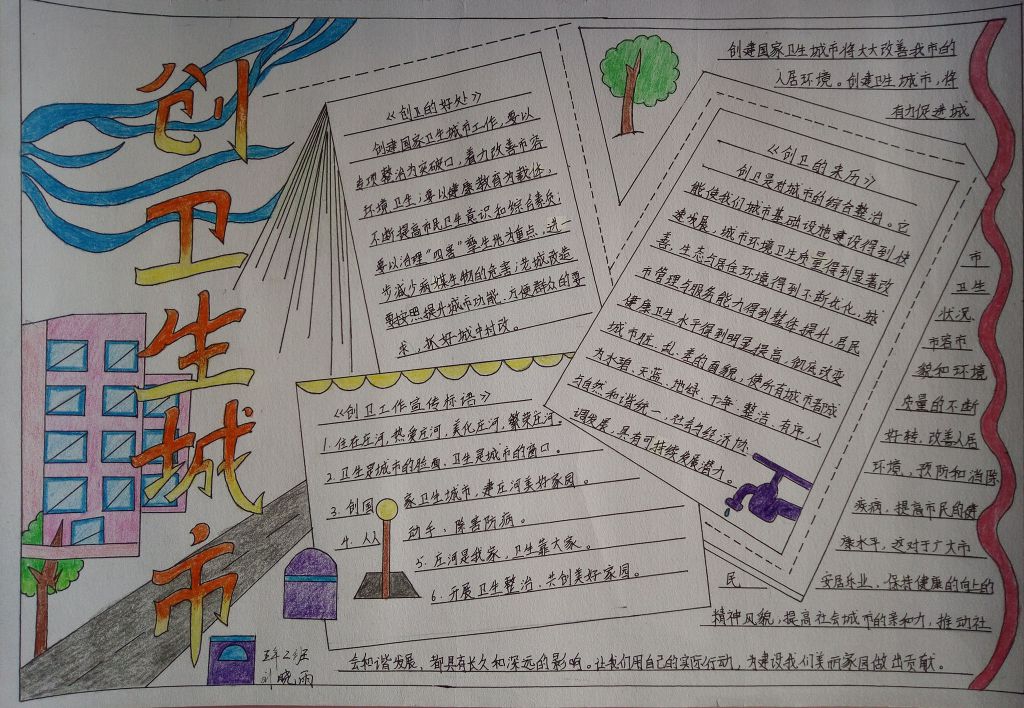 创卫生城市
《创卫的好处》
创建国家卫生城市工作，要以
专项整治为突破口，着力改善市容
环境卫生；要以健康教育为载体，
不断提高市民卫生意识和综合素质；
要以治理“四害”孳生地为重点，进一
步减少病媒生物的危害；老城改造
要按照提升城市功能、方便群众的要
求，抓好城中村改。
《创卫工作宣传标语》
1. 住在庄河，热爱庄河，美化庄河，繁荣庄河。
2. 卫生是城市的脸面，卫生是城市的窗口。
3. 创国 家卫生城市，建庄河美好家园。
4. 人人 动手、除害防病。
5. 庄河是我家，卫生靠大家。
6. 开展卫生整治、共创美好家园。
《创卫的来历》
创卫是对城市的综合整治。它
能使我们城市基础设施建设得到快
速发展，城市环境卫生质量得到显著改
善，生态与居住环境得到不断优化，城
市管理与服务能力得到整体提升，居民
健康卫生水平得到明显提高，彻底改变
城市脏、乱、差的面貌，使所有城市都成
为水碧、天蓝、地绿、干净、整洁、有序，人
与自然和谐统一，社会与经济协
调发展，具有可持续发展潜力。
创建国家卫生城市将大大改善我市的
人居环境。创建卫生城市，将
有力促进城
市
卫生
状况、
市容市
貌和环境
质量的不断
好转，改善人居
环境，预防和消除
疾病，提高市民的健
康水平，这对于广大市
民 安居乐业，保持健康的向上的
精神风貌，提高社会城市的亲和力，推动社
会和谐发展，都具有长久和深远的影响。让我们用自己的实际行动，为建设我们美丽家园做出贡献。
五年2班
刘晓雨